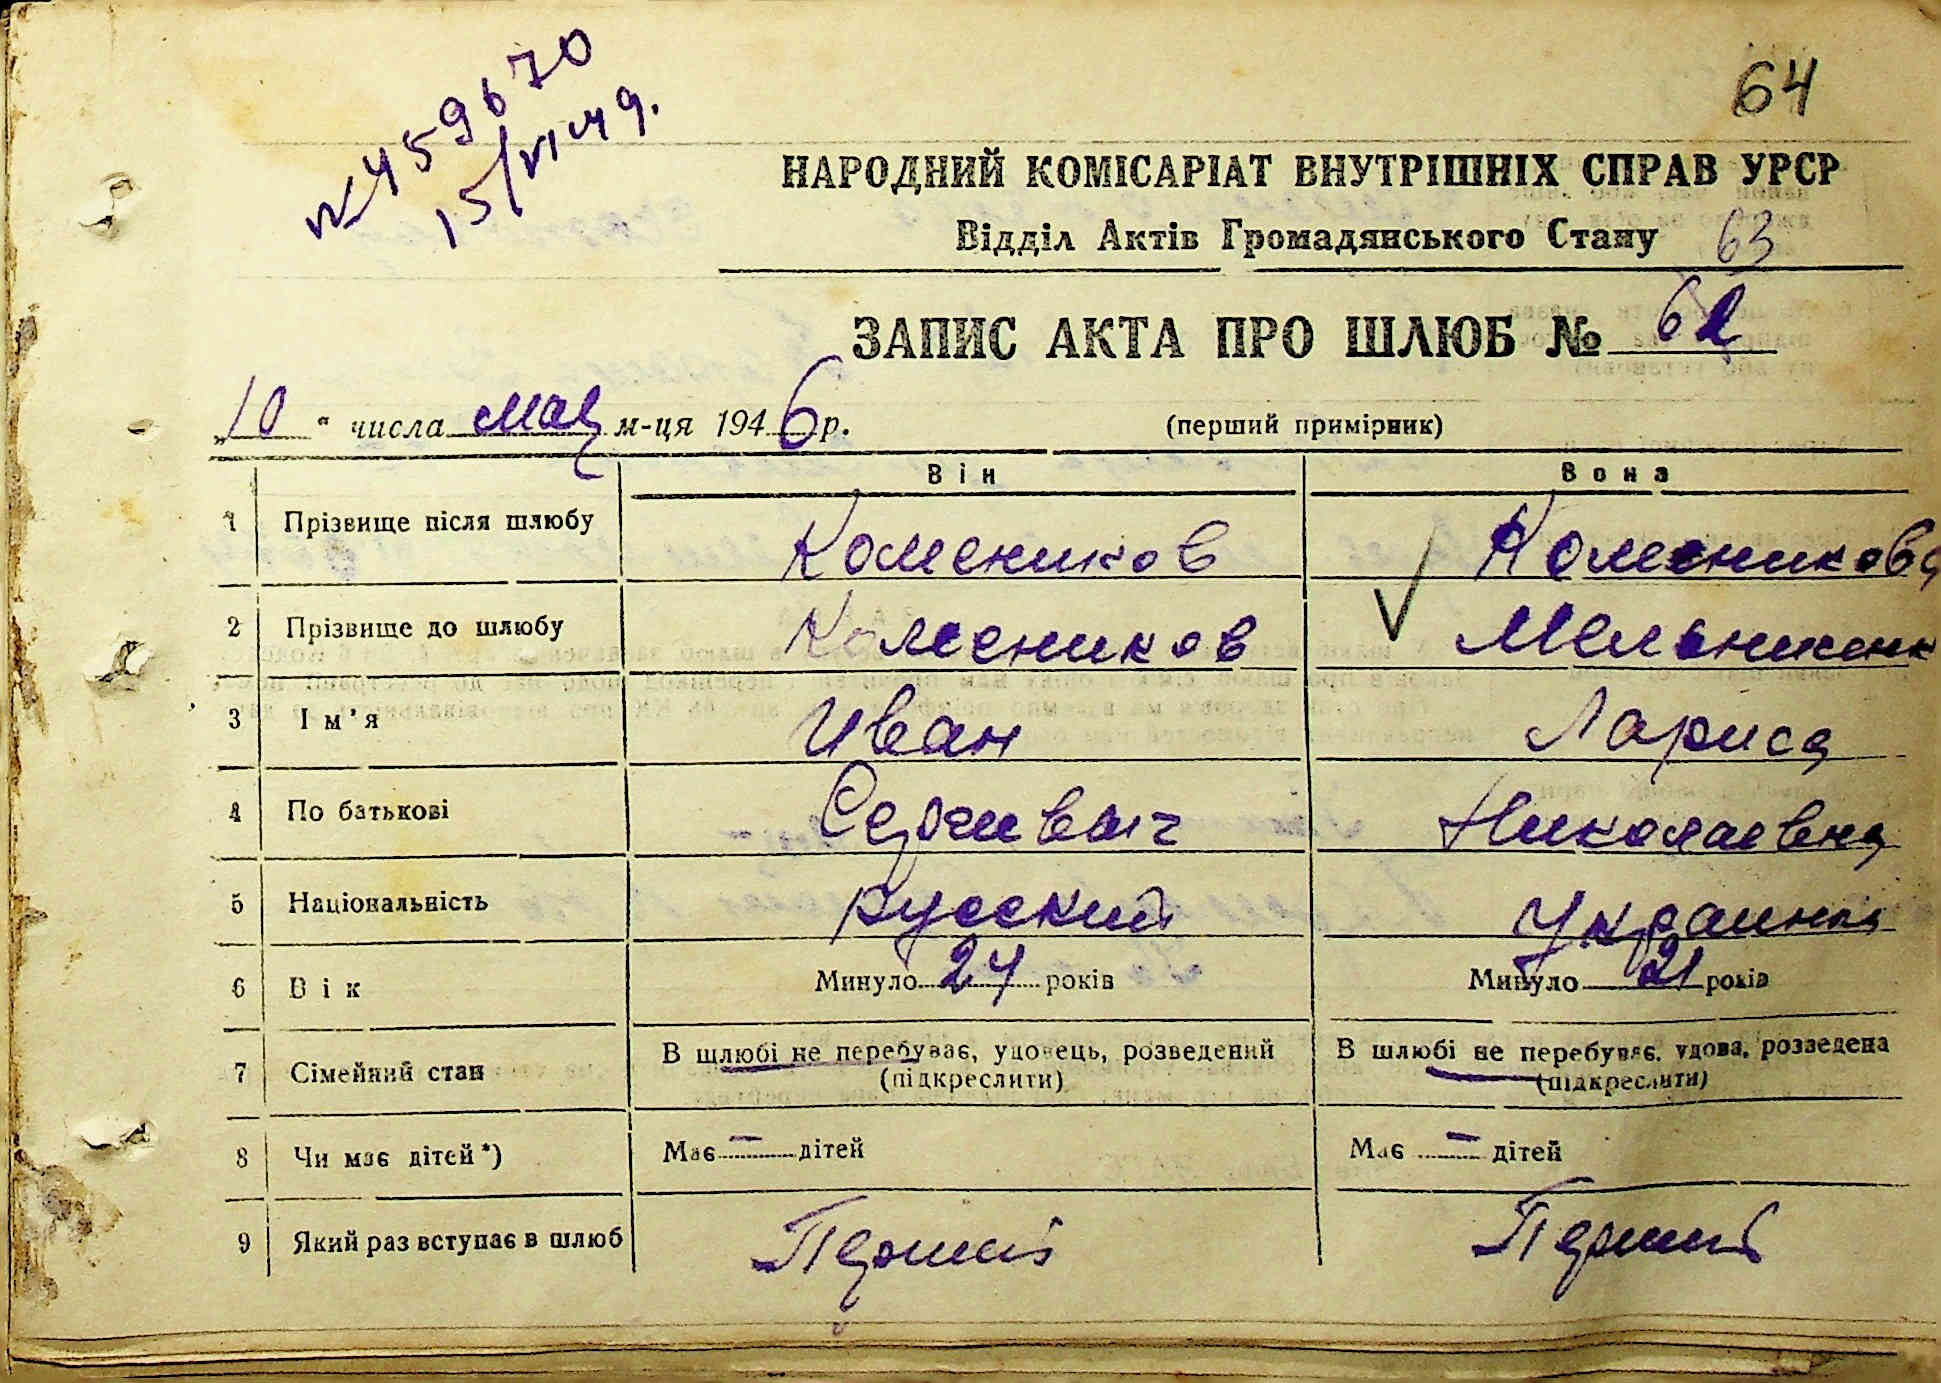 64
№ 459670
15/VI 49.
НАРОДНИЙ КОМІСАРІАТ ВНУТРІШНІХ СПРАВ УРСР
Відділ Актів Громадянського Стану 63
ЗАПИС АКТА ПРО ШЛЮБ № 62
„10“ числа мая м-ця 1946 р. (перший примірник)
Він Вона
1 Прізвище після шлюбу Колесников Колесникова
2 Прізвище до шлюбу Колесников Мельниченк
3 Ім'я Иван Лариса
4 По батькові Сергиевич Николаевна
5 Національність русский Украинка
6 Вік Минуло 24 років Минуло 21 років
7 Сімейний стан В шлюбі не перебуває, удовець, розведений В шлюбі не перебуває, удова, розведена
(підкреслити) (підкреслити)
8 Чи має дітей*) Має — дітей Має — дітей
9 Який раз вступає в шлюб Первый Первый